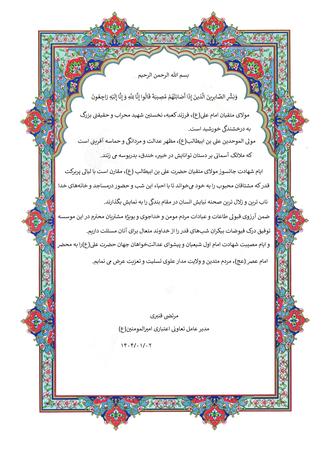 بسم الله الرحمن الرحیم
وَبَشِّرِ الصَّابِرِینَ الَّذِینَ إِذَا أَصَابَتْهُمْ مُصِیبَةٌ قَالُوا إِنَّا لِلَّهِ وَ إِنَّا إِلَیْهِ رَاجِعُونَ
مولای متقیان امام علی(ع)، فرزند کعبه، نخستین شهید محراب و حقیقتی بزرگ
به درخشندگی خورشید است.
مولی الموحدین علی بن ابیطالب(ع)، مظهر عدالت و مردانگی و حماسه آفرینی است
که ملائک آسمانی بر دستان توانایش در خیبر، خندق، بدربوسه می زنند.
ایام شهادت جانسوز مولای متقیان حضرت علی بن ابیطالب (ع)، مقارن است با لیالی پربرکت
قدر که مشتاقان محبوب را به خود می‌خواند تا با احیاء این شب و حضور درمساجد و خانه‌های خدا
ناب ترین و زلال ترین صحنه نیایش انسان در مقام بندگی را به نمایش بگذارند.
ضمن آرزوی قبولی طاعات و عبادات مردم مومن و خداجوی و بویژه مشتریان محترم در این موسسه
توفیق درک فیوضات بیکران شب‌های قدر را از خداوند متعال برای آنان مسئلت داریم.
و ایام مصیبت شهادت امام اول شیعیان و پیشوای عدالت‌خواهان جهان حضرت علی(ع)را به محضر
امام عصر (عج)، مردم متدین و ولایت مدار علوی تسلیت و تعزیت عرض می نمایم.
مرتضی قنبری
مدیر عامل تعاونی اعتباری امیرالمومنین(ع)
۱۴۰۴/۰۱/۰۲